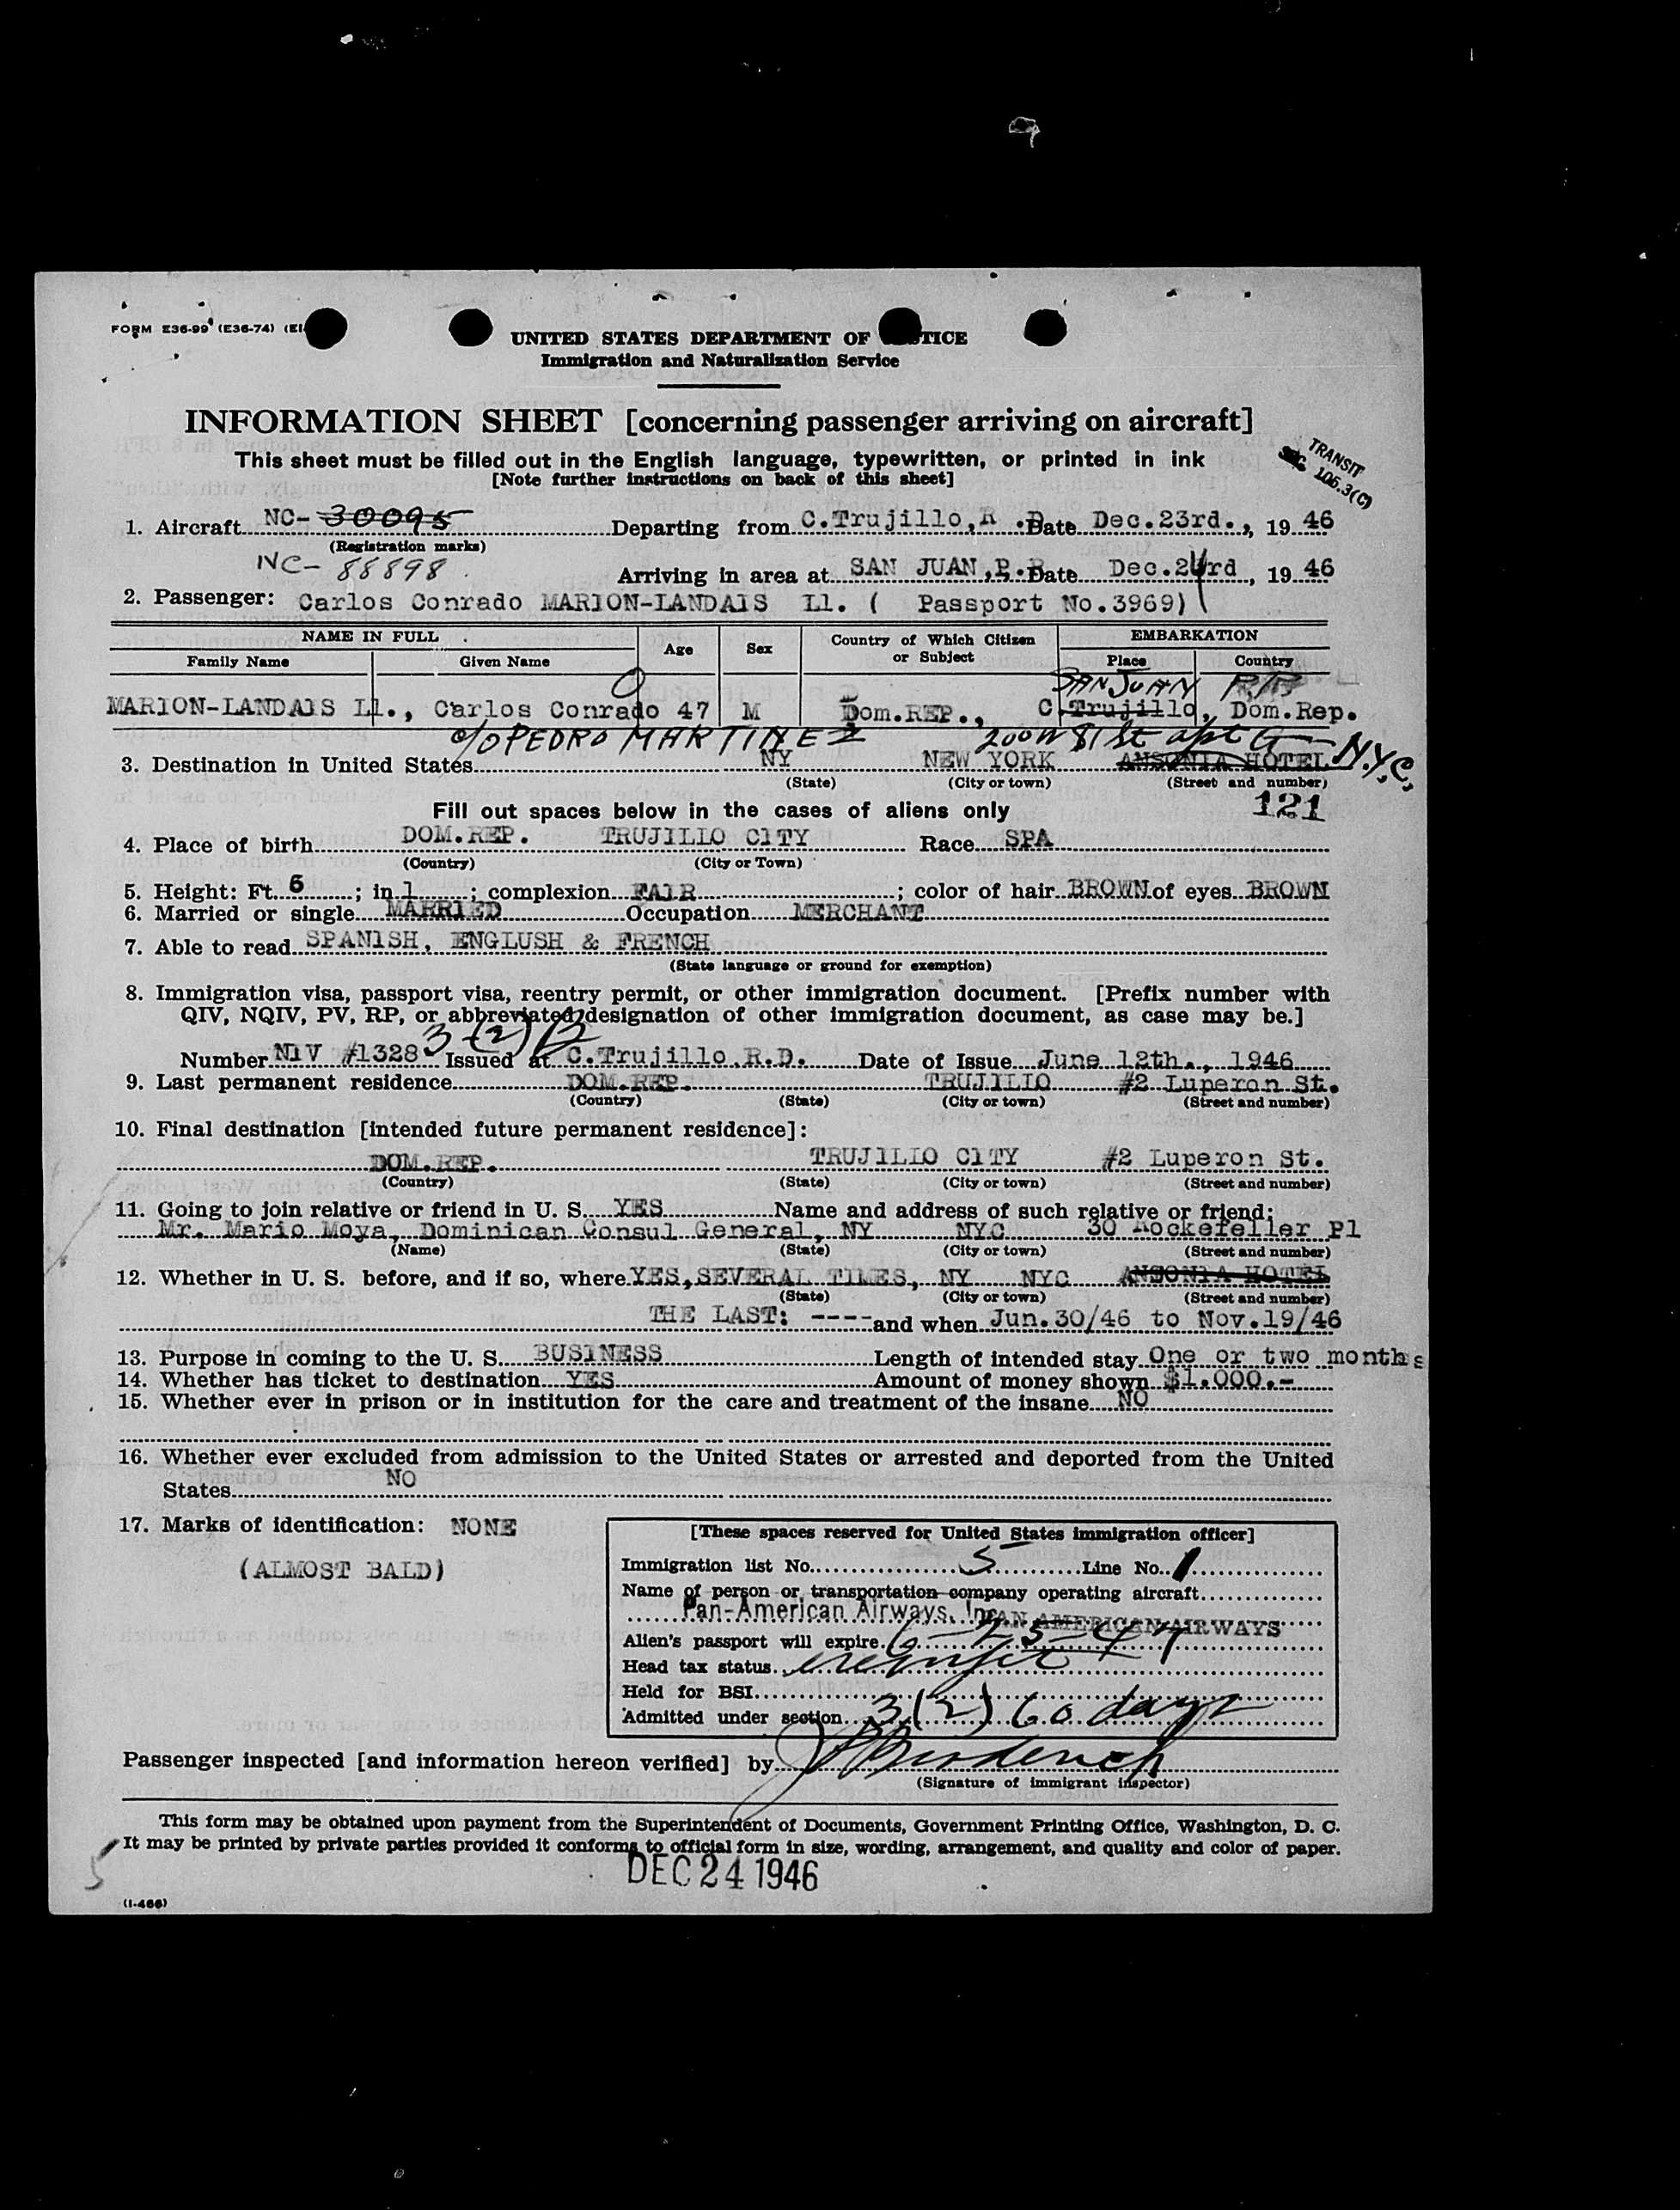 FORM E36-99 (E36-74)
UNITED STATES DEPARTMENT OF TICE
Immigration and Naturalization Service
INFORMATION SHEET [concerning passenger arriving on aircraft]
This sheet must be filled out in the English language, typewritten, or printed in ink
[Note further instructions on back of this sheet]
TRANSIT
SEC 106.3(C)
1. Aircraft NC- 30095 Departing from C.Trujillo,R .D. Date Dec.23rd., 1946
(Registration marks)
NC- 88898
Arriving in area at SAN JUAN,P.R. Date Dec.24rd, 1946
2. Passenger: Carlos Conrado MARION-LANDAIS Ll. ( Passport No.3969)
NAME IN FULL Age Sex Country of Which Citizen or Subject EMBARKATION
Family Name Given Name Place Country
SAN JUAN P.R.
MARION-LANDAIS Ll., Carlos Conrado 47 M Dom.REP., C.Trujillo, Dom.Rep.
c/o PEDRO MARTINEZ 200 W 81 St apt G N.Y.C.
3. Destination in United States NY NEW YORK ANSONIA HOTEL
(State) (City or town) (Street and number)
Fill out spaces below in the cases of aliens only 121
4. Place of birth DOM.REP. TRUJILLO CITY Race SPA
(Country) (City or Town)
5. Height: Ft. 6; in 1; complexion FAIR; color of hair BROWN of eyes BROWN
6. Married or single MARRIED Occupation MERCHANT
7. Able to read SPANISH, ENGLUSH & FRENCH
(State language or ground for exemption)
8. Immigration visa, passport visa, reentry permit, or other immigration document. [Prefix number with
QIV, NQIV, PV, RP, or abbreviated designation of other immigration document, as case may be.]
3 (2) B
Number NIV #1328 Issued at C.Trujillo,R.D. Date of Issue June 12th., 1946
9. Last permanent residence DOM.REP. TRUJILLO #2 Luperon St.
(Country) (State) (City or town) (Street and number)
10. Final destination [intended future permanent residence]:
DOM.REP. TRUJILLO CITY #2 Luperon St.
(Country) (State) (City or town) (Street and number)
11. Going to join relative or friend in U. S. YES Name and address of such relative or friend:
Mr. Mario Moya, Dominican Consul General, NY NYC 30 Rockefeller Pl
(Name) (State) (City or town) (Street and number)
12. Whether in U. S. before, and if so, where YES,SEVERAL TIMES, NY NYC ANSONIA HOTEL
(State) (City or town) (Street and number)
THE LAST: ----and when Jun.30/46 to Nov.19/46
13. Purpose in coming to the U. S. BUSINESS Length of intended stay One or two months
14. Whether has ticket to destination YES Amount of money shown $1.000.-
15. Whether ever in prison or in institution for the care and treatment of the insane NO
16. Whether ever excluded from admission to the United States or arrested and deported from the United
States NO
17. Marks of identification: NONE
(ALMOST BALD)
[These spaces reserved for United States immigration officer]
Immigration list No. 5 Line No. 1
Name of person or transportation company operating aircraft
Pan-American Airways, Inc. PAN AMERICAN AIRWAYS
Alien's passport will expire 6-25-47
Head tax status exempt
Held for BSI
Admitted under section 3(2) 60 days
Passenger inspected [and information hereon verified] by
(Signature of immigrant inspector)
This form may be obtained upon payment from the Superintendent of Documents, Government Printing Office, Washington, D. C.
It may be printed by private parties provided it conforms to official form in size, wording, arrangement, and quality and color of paper.
DEC 24 1946
5
(I-466)